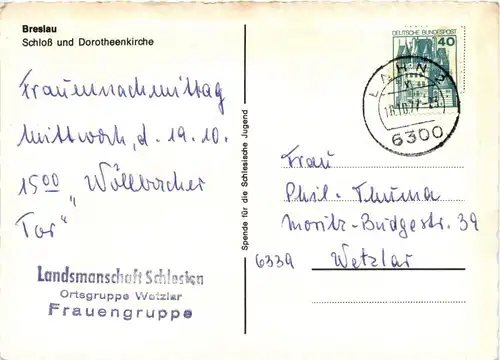 Breslau
Schloß und Dorotheenkirche
Frauennachmittag
Mittwoch, d. 19.10.
15⁰⁰ "Wöllbacher
Tor"
Landsmannschaft Schlesien
Ortsgruppe Wetzlar
Frauengruppe
Spende für die Schlesische Jugend
DEUTSCHE BUNDESPOST
40
LAHN 2
18.10.77
6300
Frau
Phil. Thuma
Moritz-Budgestr. 39
6339 Wetzlar